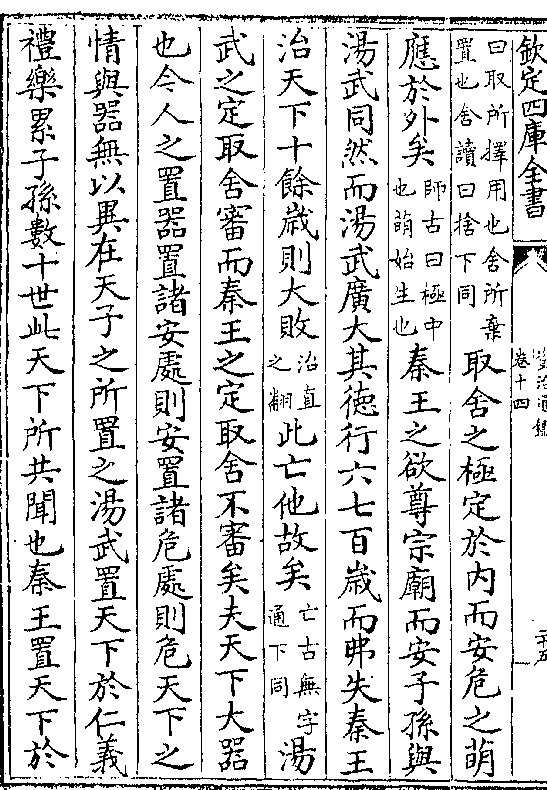 欽定四庫全書
資治通鑑
卷十四
二十五
曰取所擇用也舍所棄
置也舍讀曰捨下同
取舍之極定於内而安危之萌
應於外矣
師古曰極中
也萌始生也
秦王之欲尊宗廟而安子孫與
湯武同然而湯武廣大其德行六七百歲而弗失秦王
治天下十餘歲則大敗
治直
之翻
此亡他故矣
亡古無字
通下同
湯
武之定取舍審而秦王之定取舍不審矣夫天下大器
也今人之置器置諸安處則安置諸危處則危天下之
情與器無以異在天子之所置之湯武置天下於仁義
禮樂累子孫數十世此天下所共聞也秦王置天下於